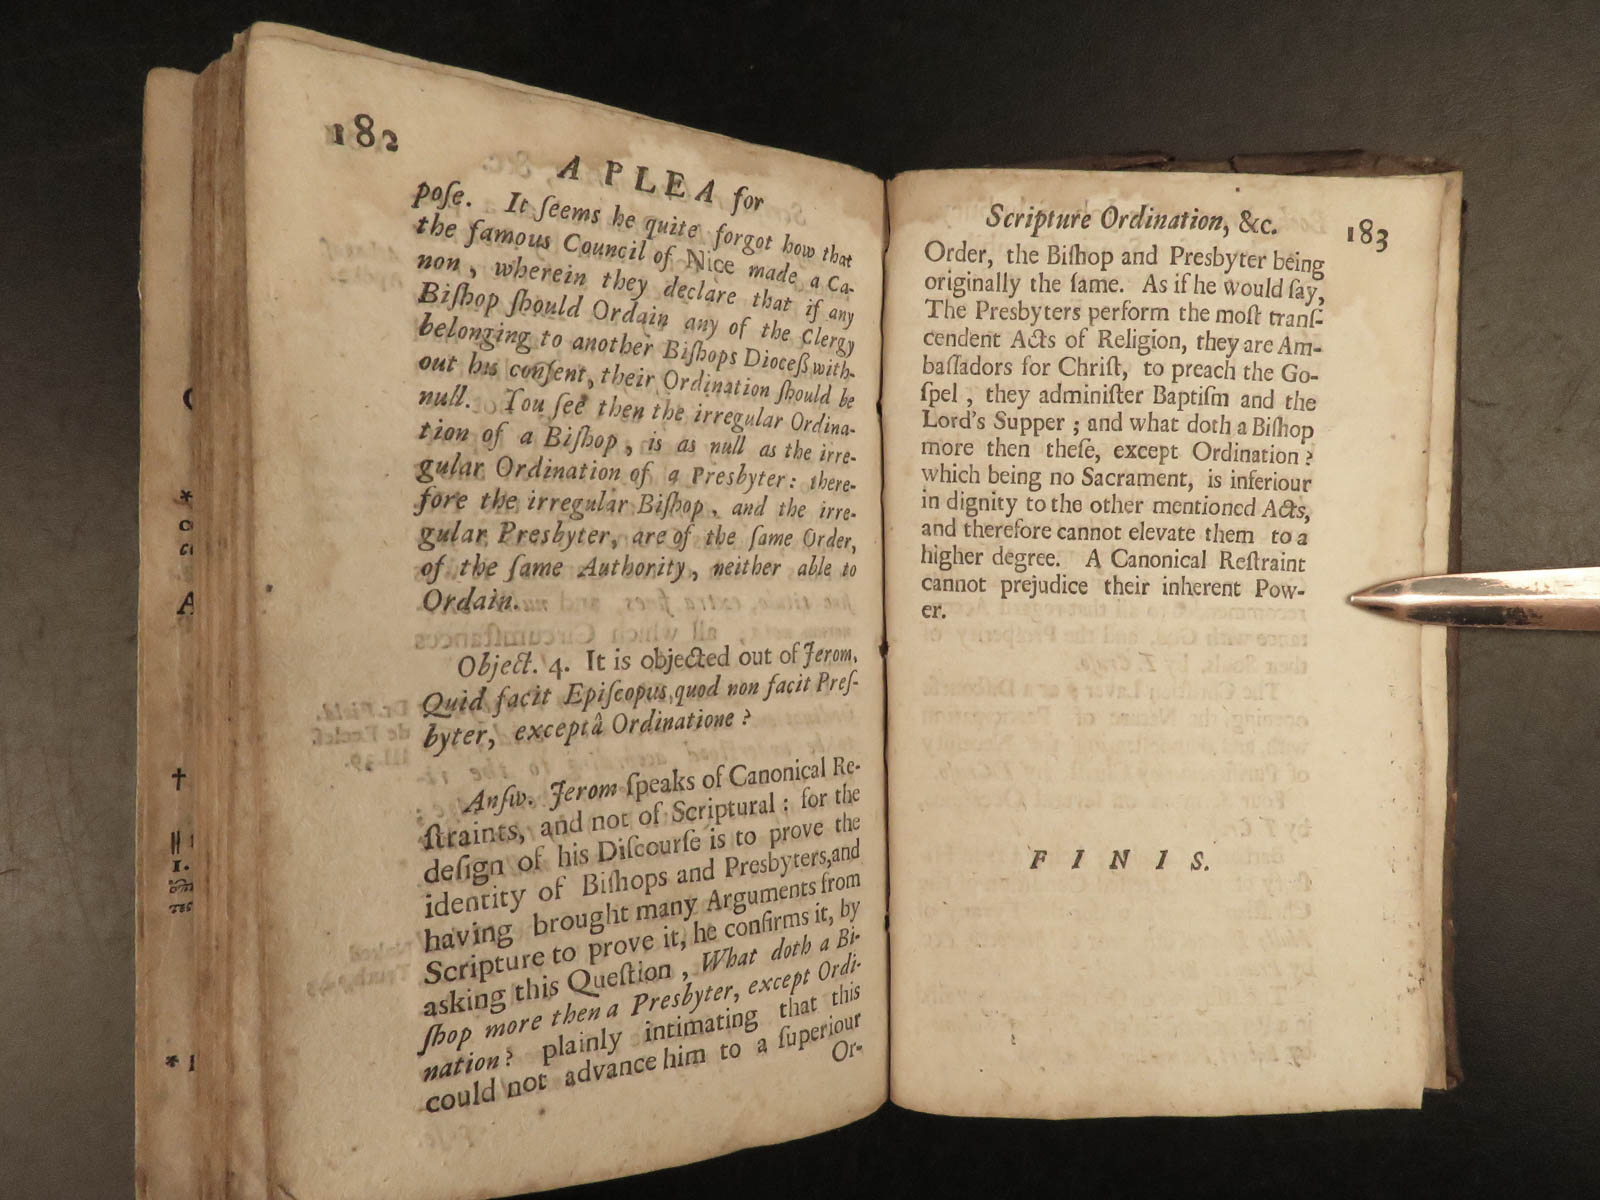 182
A PLEA for
poſe. It ſeems he quite forgot how that
the famous Council of Nice made a Ca-
non, wherein they declare that if any
Biſhop ſhould Ordain any of the Clergy
belonging to another Biſhops Dioceſs with-
out his conſent, their Ordination ſhould be
null. You ſee then the irregular Ordina-
tion of a Biſhop, is as null as the irre-
gular Ordination of a Presbyter: there-
fore the irregular Biſhop, and the irre-
gular Presbyter, are of the ſame Order,
of the ſame Authority, neither able to
Ordain.
Object. 4. It is objected out of Jerom,
Quid facit Epiſcopus, quod non facit Preſ-
byter, exceptâ Ordinatione?
Anſw. Jerom ſpeaks of Canonical Re-
ſtraints, and not of Scriptural: for the
deſign of his Diſcourſe is to prove the
identity of Biſhops and Presbyters, and
having brought many Arguments from
Scripture to prove it, he confirms it, by
asking this Queſtion, What doth a Bi-
ſhop more then a Presbyter, except Ordi-
nation? plainly intimating that this
could not advance him to a ſuperiour
Or-
Scripture Ordination, &c.
183
Order, the Biſhop and Presbyter being
originally the ſame. As if he would ſay,
The Presbyters perform the moſt tranſ-
cendent Acts of Religion, they are Am-
baſſadors for Chriſt, to preach the Go-
ſpel, they adminiſter Baptiſm and the
Lord's Supper; and what doth a Biſhop
more then theſe, except Ordination?
which being no Sacrament, is inferiour
in dignity to the other mentioned Acts,
and therefore cannot elevate them to a
higher degree. A Canonical Reſtraint
cannot prejudice their inherent Pow-
er.
FINIS.